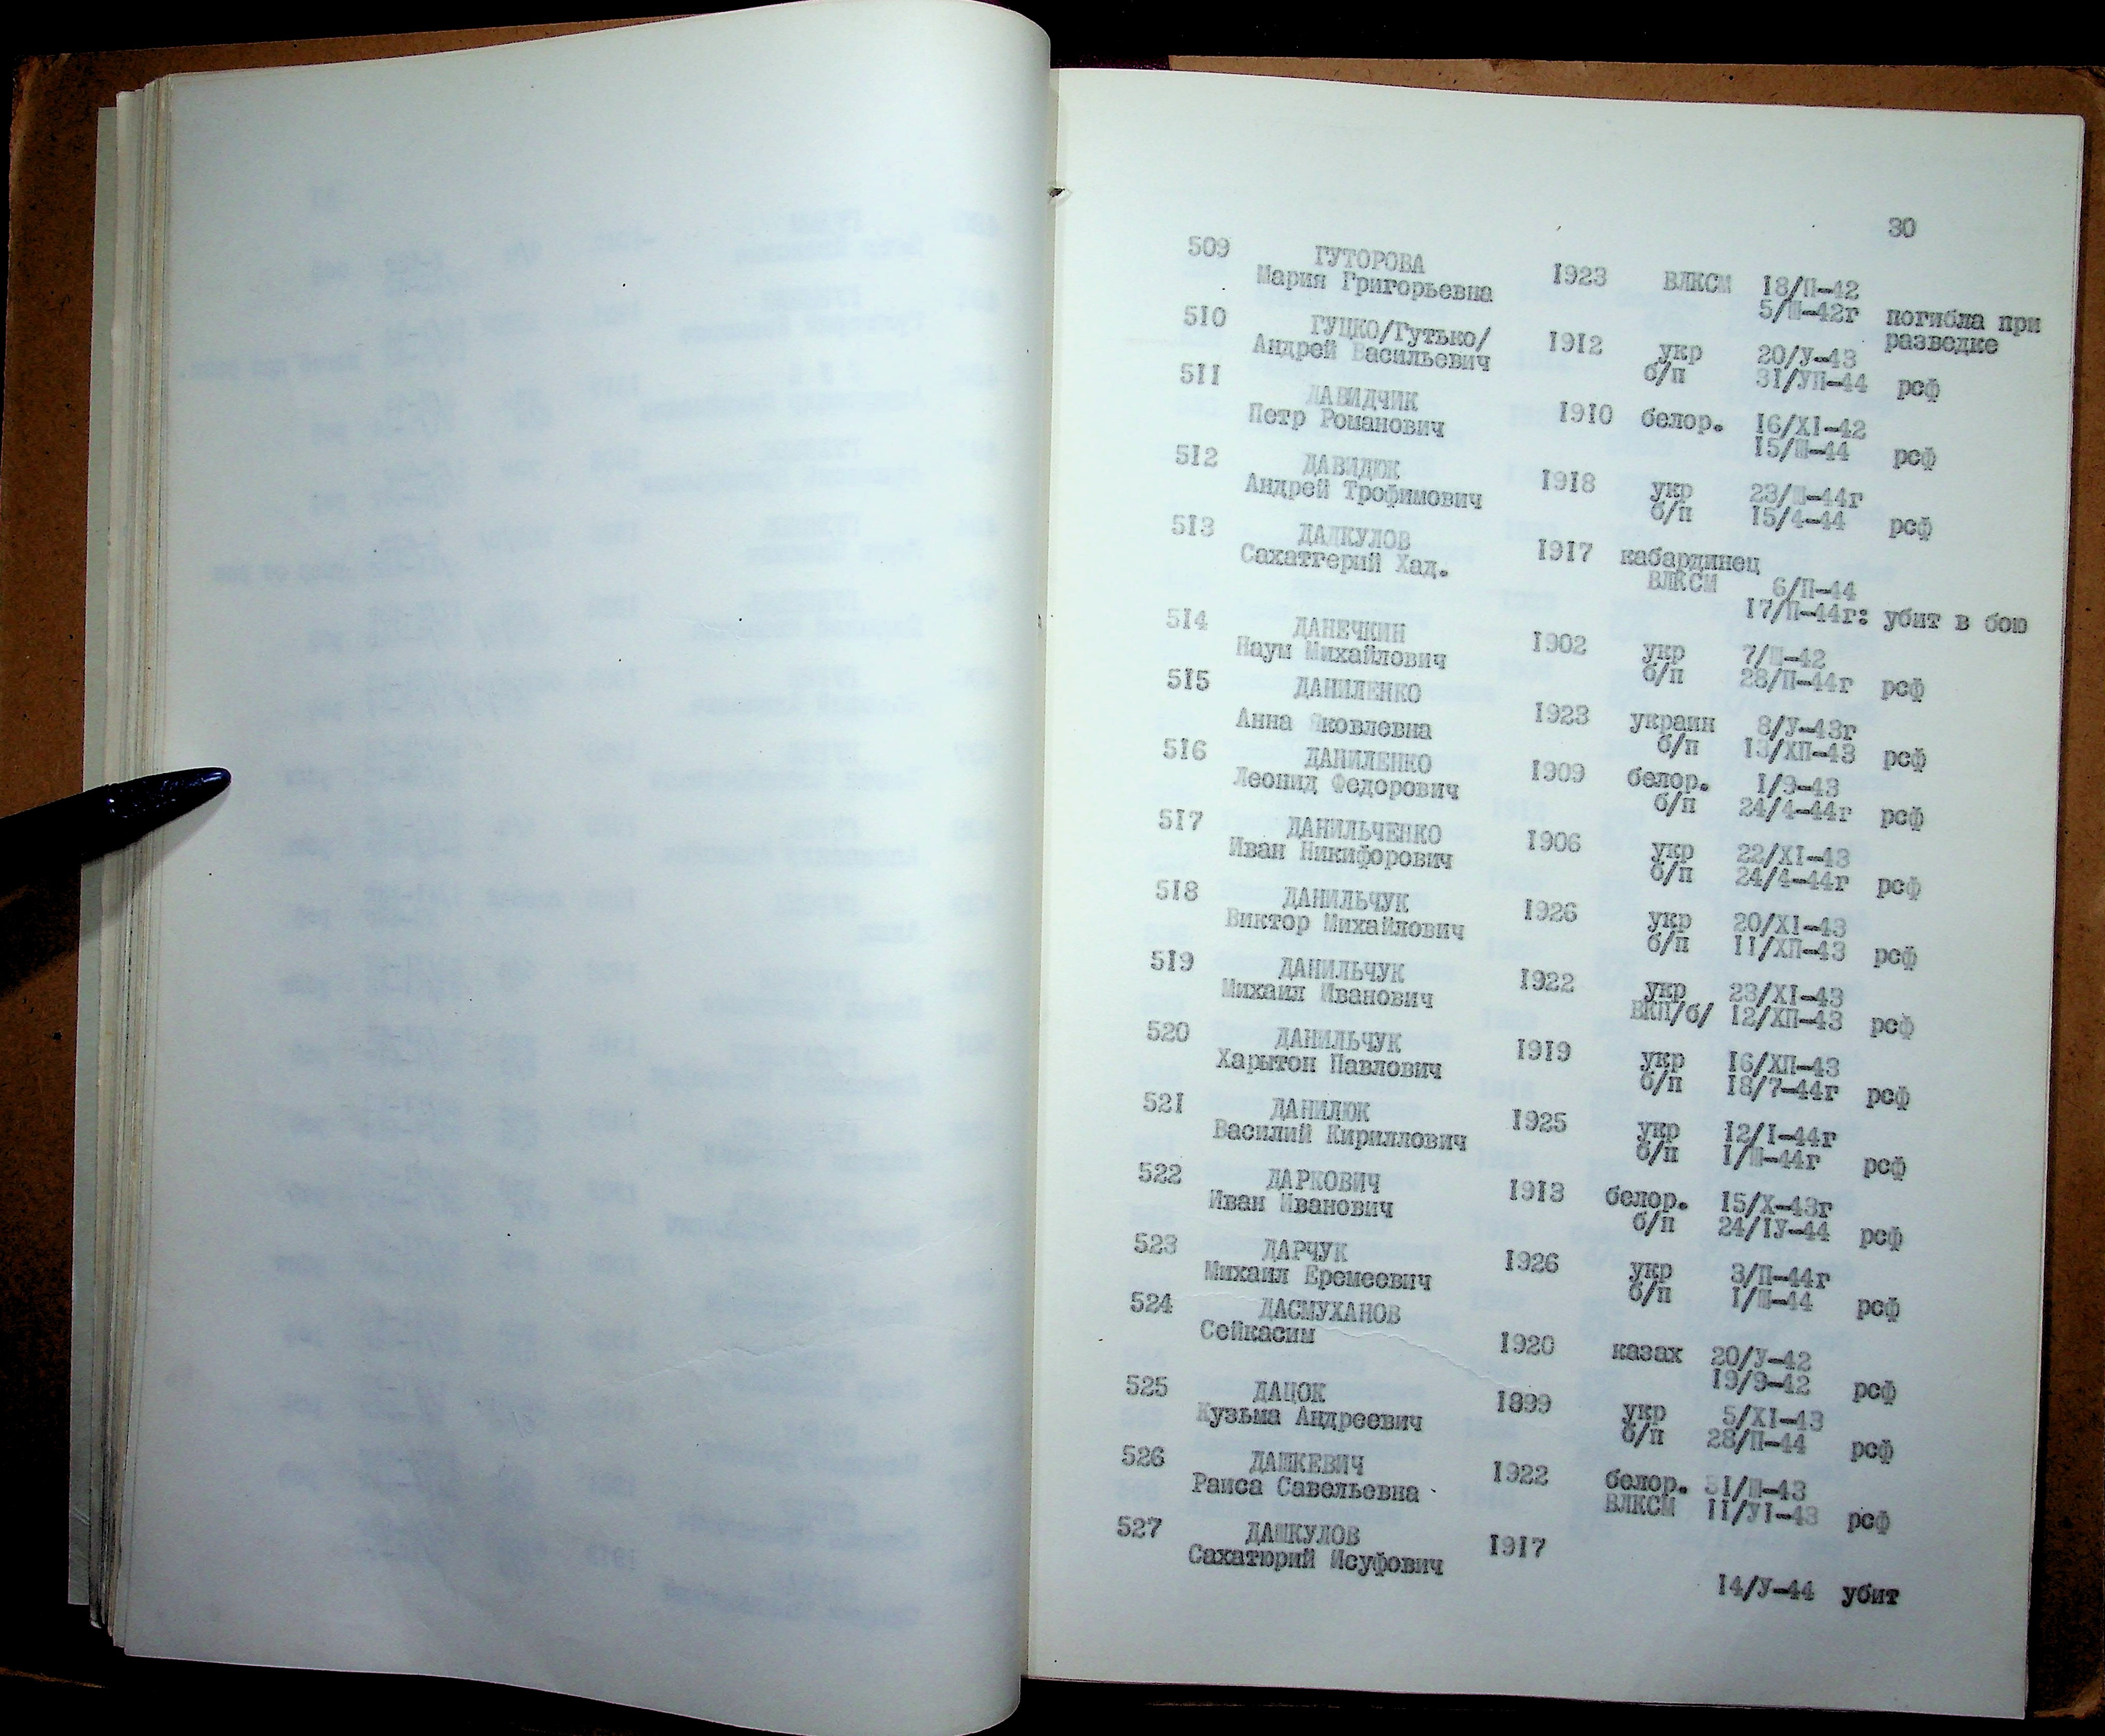 30
509 ГУТОРОВА
Мария Григорьевна 1923 ВЛКСМ 18/П-42
5/Ш-42г погибла при
разведке
510 ГУЦКО/Гутько/
Андрей Васильевич 1912 укр 20/У-43
б/п 31/УП-44 рсф
511 ДАВИДЧИК
Петр Романович 1910 белор. 16/Х1-42
15/Ш-44 рсф
512 ДАВИДЮК
Андрей Трофимович 1918 укр 23/Ш-44г
б/п 15/4-44 рсф
513 ДАЛКУЛОВ
Сахатгерий Хад. 1917 кабардинец
ВЛКСМ 6/П-44
17/П-44г: убит в бою
514 ДАНЕЧКИН
Наум Михайлович 1902 укр 7/Ш-42
б/п 28/П-44г рсф
515 ДАНИЛЕНКО
Анна Яковлевна 1923 украин 8/У-43г
б/п 13/ХП-43 рсф
516 ДАНИЛЕНКО
Леонид Федорович 1909 белор. 1/9-43
б/п 24/4-44г рсф
517 ДАНИЛЬЧЕНКО
Иван Никифорович 1906 укр 22/XI-43
б/п 24/4-44г рсф
518 ДАНИЛЬЧУК
Виктор Михайлович 1926 укр 20/XI-43
б/п 11/ХП-43 рсф
519 ДАНИЛЬЧУК
Михаил Иванович 1922 укр 23/XI-43
ВКП/б/ 12/ХП-43 рсф
520 ДАНИЛЬЧУК
Харытон Павлович 1919 укр 16/ХП-43
б/п 18/7-44г рсф
521 ДАНИЛЮК
Василий Кириллович 1925 укр 12/I-44г
б/п 1/Ш-44г рсф
522 ДАРКОВИЧ
Иван Иванович 1913 белор. 15/Х-43г
б/п 24/IУ-44 рсф
523 ДАРЧУК
Михаил Еремеевич 1926 укр 3/П-44г
б/п 1/Ш-44 рсф
524 ДАСМУХАНОВ
Сейкасим 1920 казах 20/У-42
19/9-42 рсф
525 ДАЦЮК
Кузьма Андреевич 1899 укр 5/XI-43
б/п 28/П-44 рсф
526 ДАШКЕВИЧ
Раиса Савельевна 1922 белор. 31/Ш-43
ВЛКСМ 11/У1-43 рсф
527 ДАШКУЛОВ
Сахатюрий Исуфович 1917
14/У-44 убит